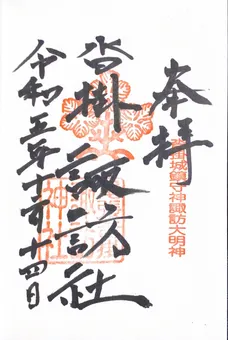 奉拝
沓掛城鎮守神諏訪大明神
沓掛 諏訪社
令和五年十二月十四日